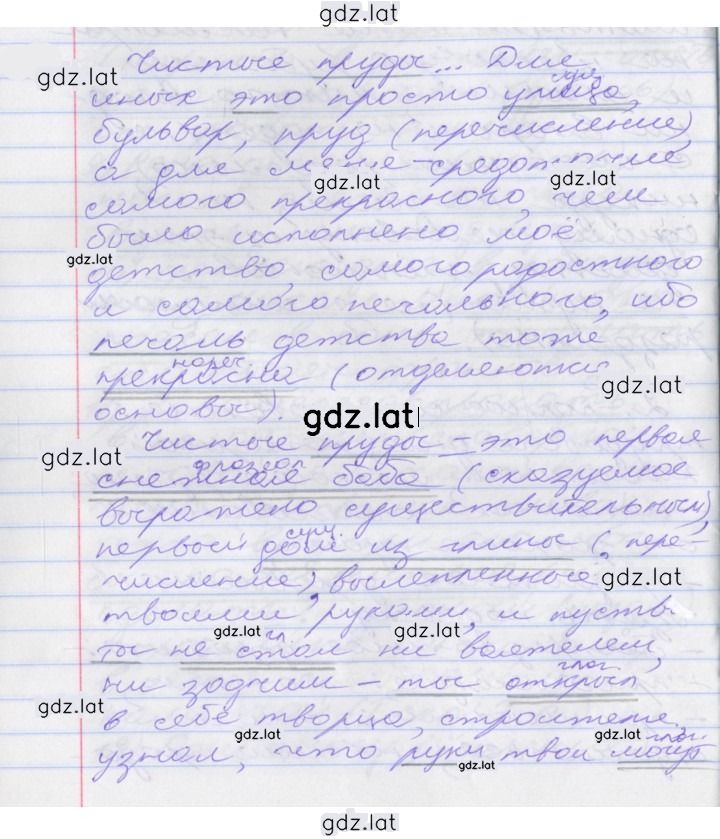 gdz.lat
Чистые пруды... Для
gdz.lat
сущ.
иных это просто улица,
бульвар, пруд (перечисление),
а для меня - средоточие
gdz.lat
gdz.lat
самого прекрасного, чем
было исполнено моё
gdz.lat
детство, самого радостного
и самого печального, ибо
печаль детства тоже
нареч.
прекрасна (отделяются
gdz.lat
основы).
gdz.lat
Чистые пруды – это первая
gdz.lat
фразеол
снежная баба (сказуемое
выражено существительным),
сущ.
первый дом из глины (пере-
числение), вылепленные
gdz.lat
твоими руками, и пусть
gdz.lat
gdz.lat
гл.
ты не стал ни ваятелем,
глаг.
ни зодчим – ты открыл
gdz.lat
в себе творца, строителя.
gdz.lat
gdz.lat
глаг.
узнал, что руки твои могут
gdz.lat
gdz.lat